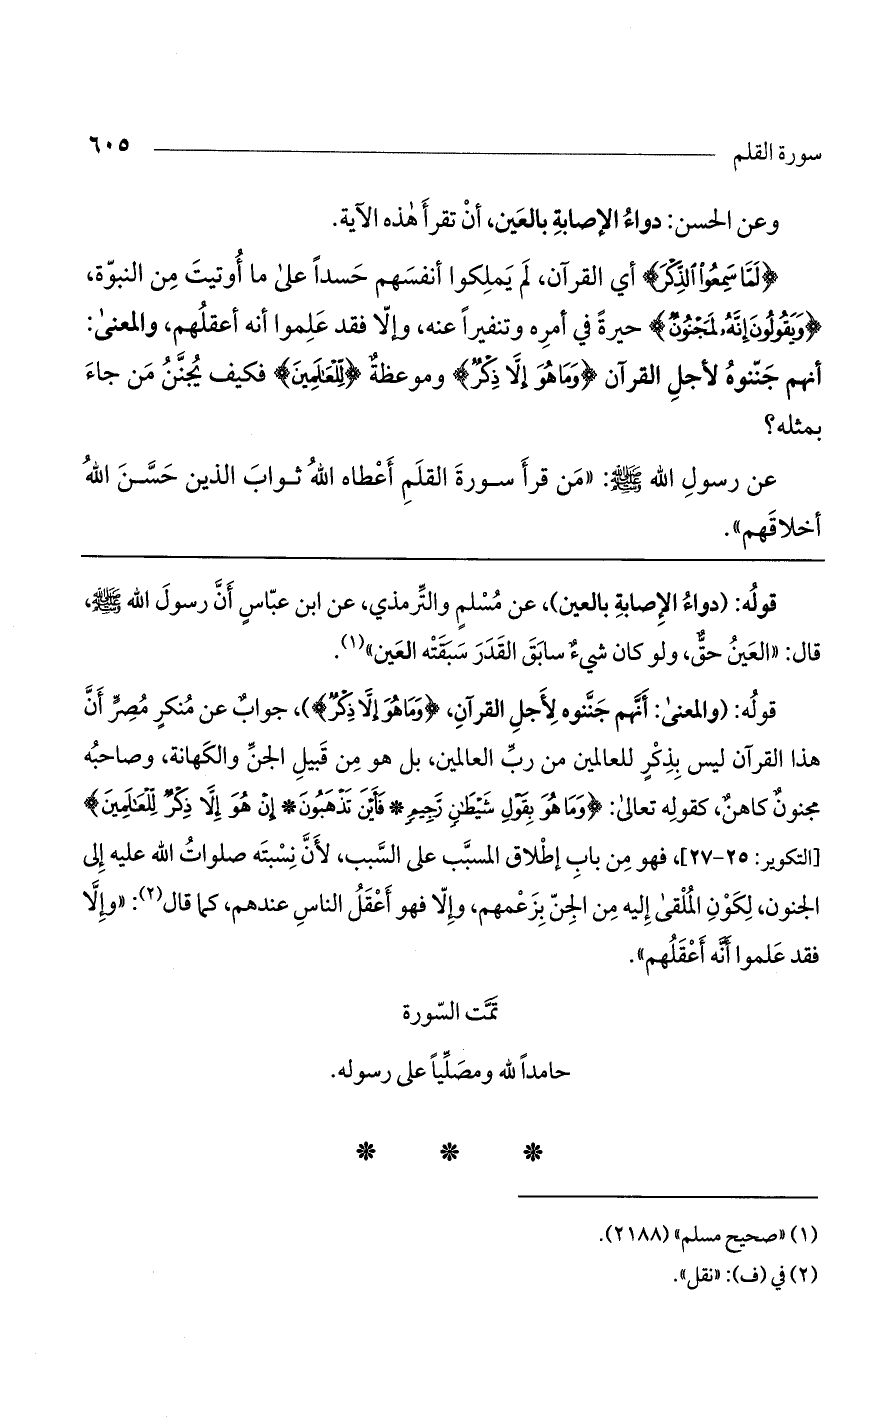 سورة القلم ٦٠٥
وعن الحسن: دواءُ الإصابةِ بالعَين، أنْ تقرأَ هٰذه الآية.
﴿لَمَّا سَمِعُوا۟ ٱلذِّكْرَ﴾ أي القرآن، لَم يَملِكوا أنفسَهم حَسداً علىٰ ما أُوتيتَ مِن النبوّة،
﴿وَيَقُولُونَ إِنَّهُۥ لَمَجْنُونٌ﴾ حيرةً في أمرِه وتنفيراً عنه، وإلّا فقد عَلِموا أنه أعقلُهم، والمعنىٰ:
أنهم جَنّنوهُ لأجلِ القرآن ﴿وَمَا هُوَ إِلَّا ذِكْرٌ﴾ وموعظةٌ ﴿لِّلْعَٰلَمِينَ﴾ فكيف يُجنَّنُ مَن جاءَ
بمثله؟
عن رسولِ الله ﷺ: «مَن قرأَ سورةَ القلَمِ أَعْطاه اللهُ ثوابَ الذين حَسَّنَ اللهُ
أخلاقَهم».
قولُه: (دواءُ الإصابةِ بالعين)، عن مُسْلمٍ والتِّرمذي، عن ابن عبّاسٍ أَنَّ رسولَ الله ﷺ،
قال: «العَينُ حقٌّ، ولو كان شيءٌ سابَقَ القَدَرَ سَبَقَتْه العَين»(١).
قولُه: (والمعنىٰ: أَنَّهم جَنَّنوه لِأجلِ القرآنِ، ﴿وَمَا هُوَ إِلَّا ذِكْرٌ﴾)، جوابٌ عن مُنكرٍ مُصِرٍّ أَنَّ
هذا القرآن ليس بِذِكْرٍ للعالمين من ربِّ العالمين، بل هو مِن قَبيلِ الجنِّ والكَهانة، وصاحبُه
مجنونٌ كاهنٌ، كقولِه تعالىٰ: ﴿وَمَا هُوَ بِقَوْلِ شَيْطَٰنٍ رَّجِيمٍ * فَأَيْنَ تَذْهَبُونَ * إِنْ هُوَ إِلَّا ذِكْرٌ لِّلْعَٰلَمِينَ﴾
[التكوير: ٢٥-٢٧]، فهو مِن بابِ إطْلاق المسبَّب على السَّبب، لأَنَّ نِسْبتَه صلواتُ الله عليه إلى
الجنون، لِكَوْنِ المُلْقىٰ إليه مِن الجِنّ بِزَعْمهم، وإلّا فهو أَعْقَلُ الناسِ عندهم، كما قال(٢): «وإلَّا
فقد عَلموا أنَّه أَعْقَلُهم».
تمَّت السّورة
حامداً لله ومصَلِّياً على رسوله.
* * *
(١) «صحيح مسلم» (٢١٨٨).
(٢) في (ف): «نقل».